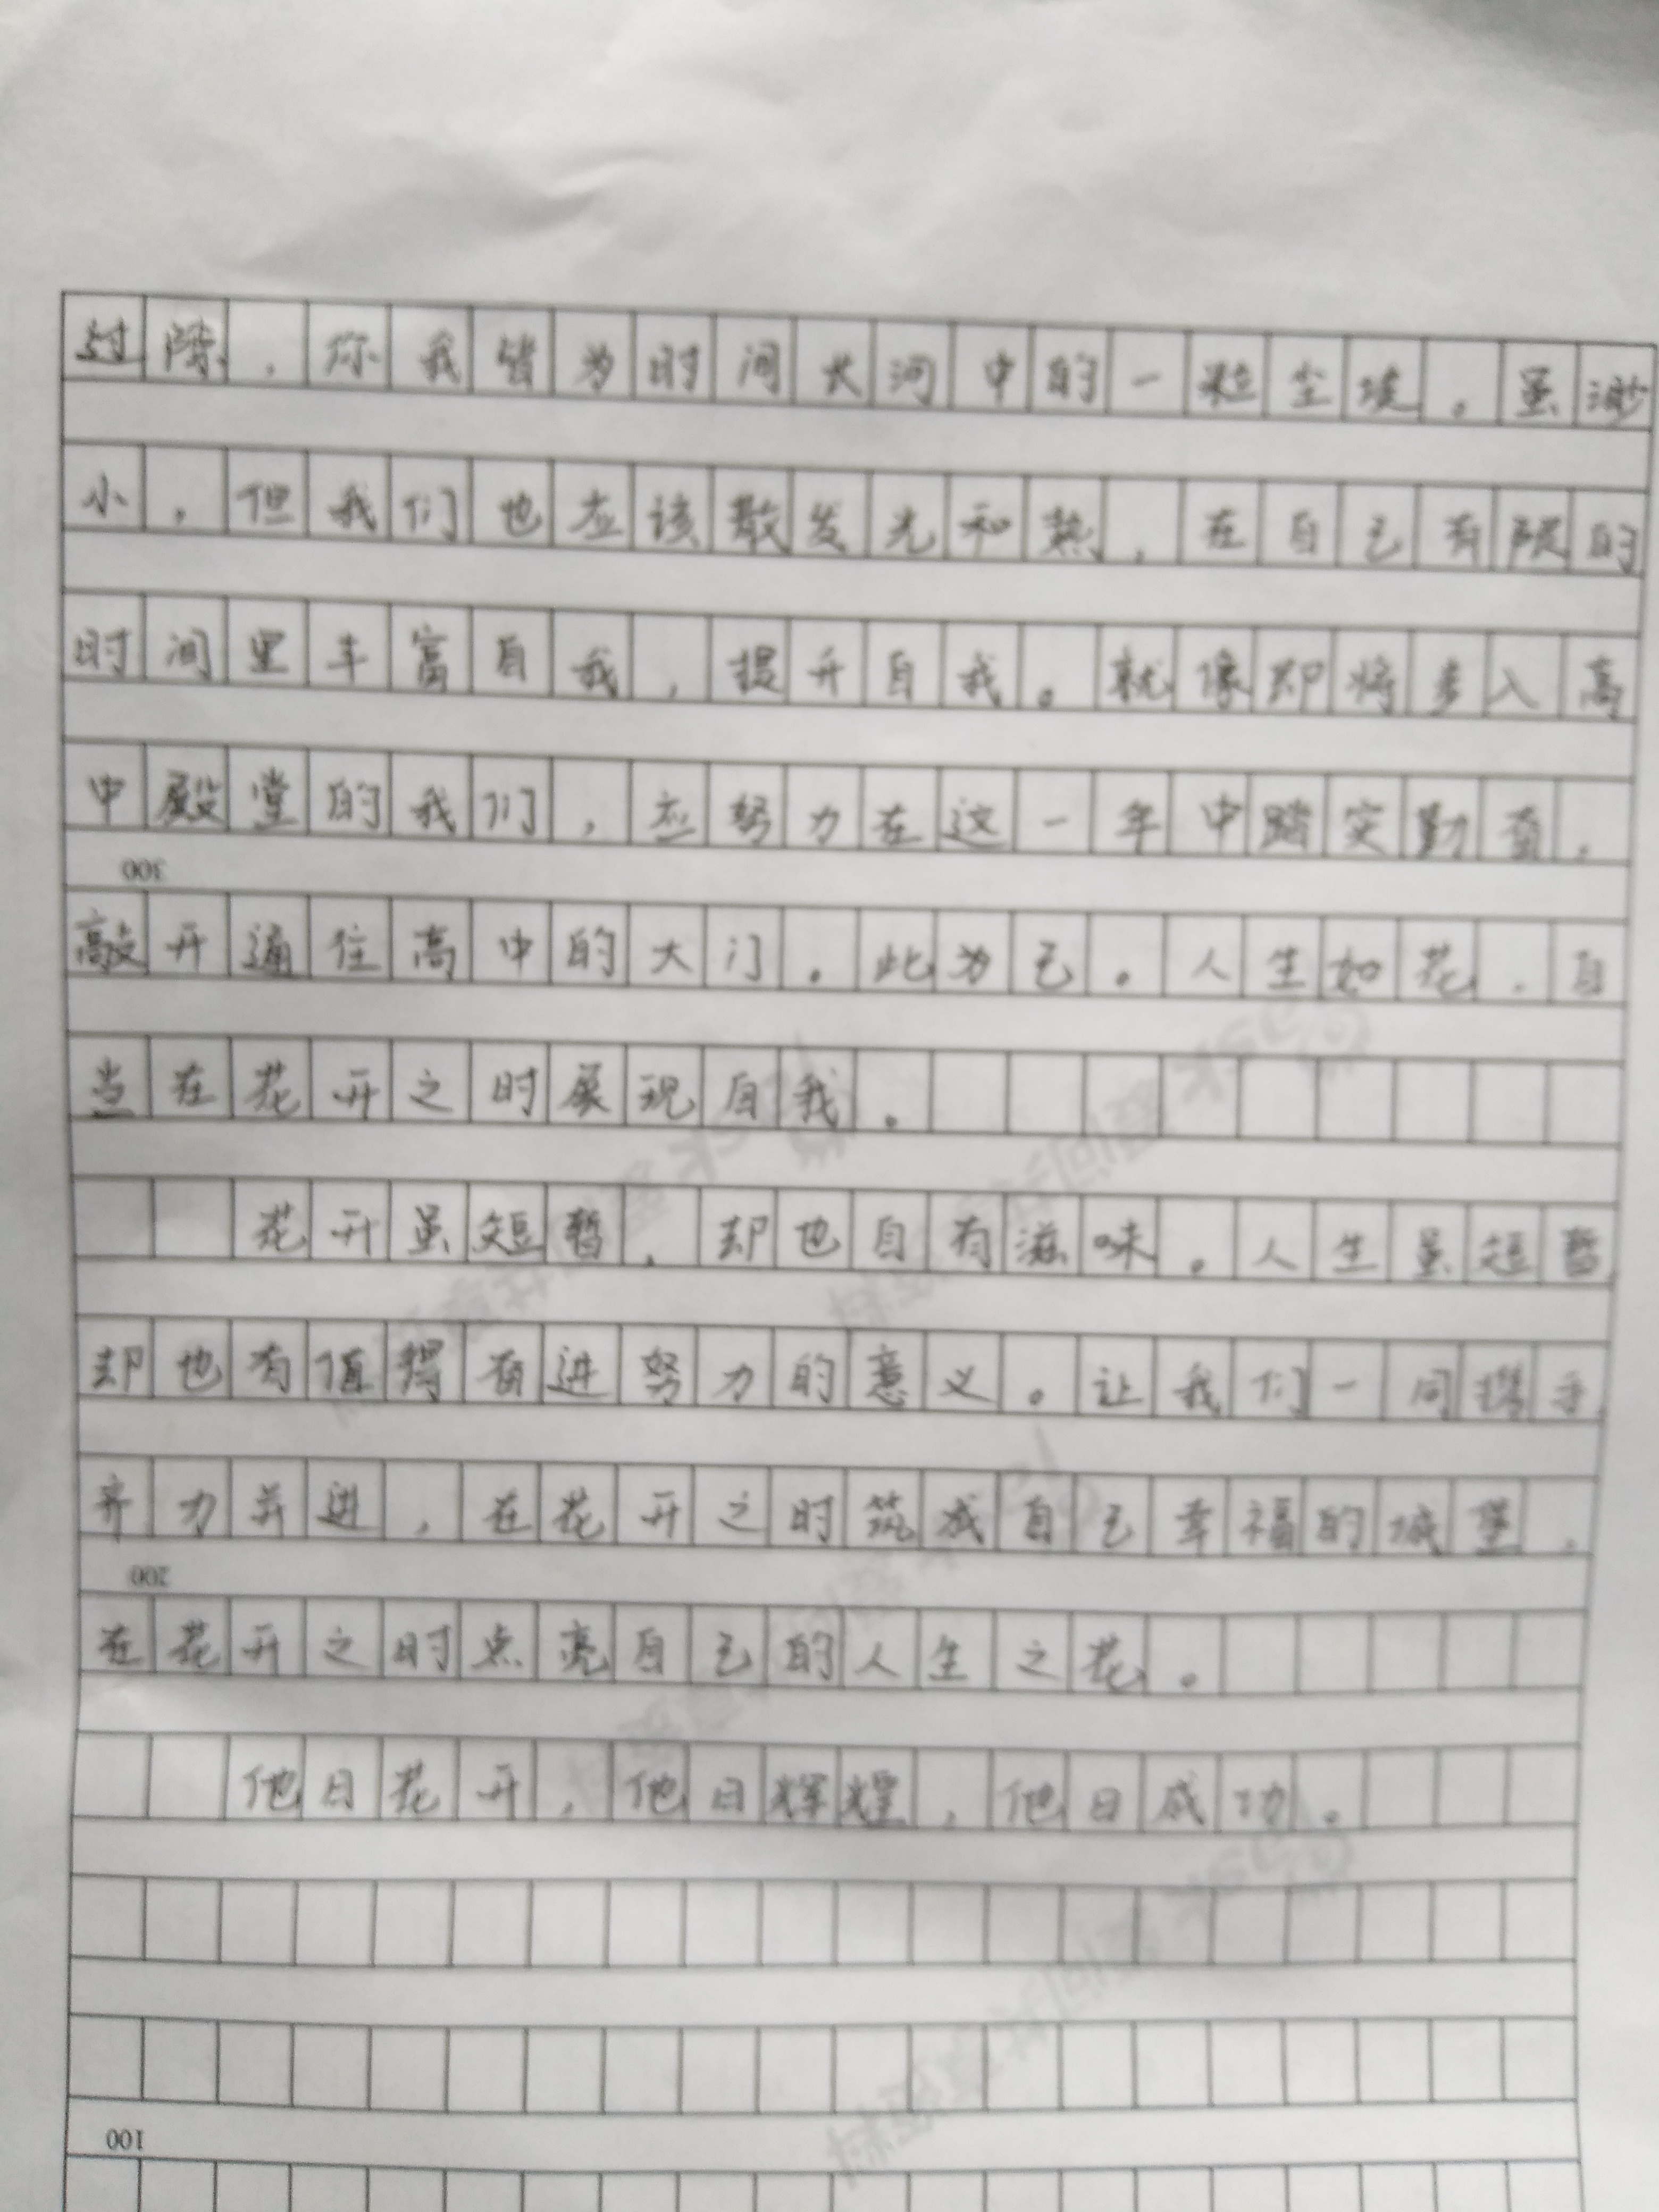 过隙，你我皆为时间长河中的一粒尘埃。虽渺
小，但我们也应该散发光和热，在自己有限的
时间里丰富自我，提升自我。就像即将步入高
中殿堂的我们，应努力在这一年中踏实勤奋，
300
敲开通往高中的大门。此为已。人生如花，自
当在花开之时展现自我。
花开虽短暂，却也自有滋味。人生虽短暂
却也有值得奋进努力的意义。让我们一同携手
齐力并进，在花开之时筑成自己幸福的城堡，
200
在花开之时点亮自己的人生之花。
他日花开，他日辉煌，他日成功。
100